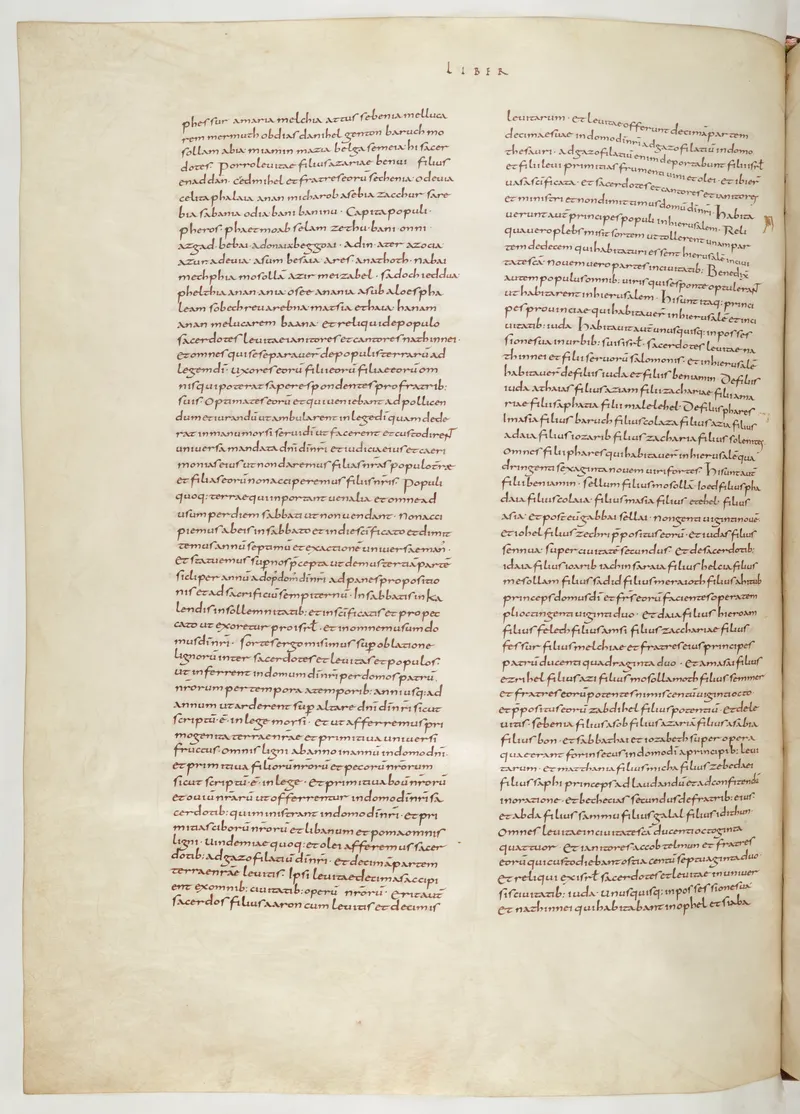 LIBER
phessur amaria melchia attus sebenia melluc a
rem mermuth obdias danihel genton baruch mo
sollam abia miamin mazia belga semeia hi sacer
dotes porro leuitae filius azariae benui filius
enaddan cedmihel et fratres eorū sechenia odeuia
celita phalaia anan micha rob asebia zacchur sare
bia sabania odia bani baninu · Capita populi ·
pheros · phaetmoab helam zethu · bani · onni ·
azgad · bebai · adonia · beggoai · adin · ater · azocia ·
azur · adeuia · asum · besaia · ares · anathoth · nabai ·
mechphia · mosollā · azir · meizabel · sadoch · ieddua ·
phelthia · anan · ania · osee · anania · asub · aloes · pha
leam sobech reu arebna · matsia et haua hanam
anan melucarem baana · et reliqui de populo
sacerdotes leuitae ianitores et cantores nathinnei ·
et omnes qui se separauer̄ de populis terrarū ad
legem di · uxores eorū filii eorū filiae eorū om
nis qui poterat sapere spondentes pro fratrib:
suis · Optimates eorū et qui ueniebant ad pollicen
dum et iurandū ut ambularent in lege di quam dede
rat in manu morsi serui di ut facerent et custodirent
uniuersa mandata dni di nri et iudicia eius et caeri
monias eius ut non daremus filias nras populo trae
et filias eorū non acciperemus filiis nris · Populi
quoq: terrae qui inportant uenalia et omne ad
usum per diem sabbati ut non uendant · Non acci
piemus ab eis in sabbato et in die scificato et dimit
temus annū septimū et exactionē uniuersae man ·
Et statuemus sup nos p̄cepta ut demus tertiā partē
sicli per annū ad op domi di nri ad panes propositio
nis et ad sacrificiū sempiternū · In sabbatis in ka
lendis in sollemnitatib: et in scificatis et pro pec
cato ut exoretur pro isrl · et in omnem usum do
mus di nri · sortes ergo misimus sup oblatione
lignorū inter sacerdotes et leuitas et populos ·
ut inferrent in domum di nri per domos patrū
nrorum per tempora a temporib: anni usq: ad
annum ut arderent sup altare dni di nri sicut
scriptū · ē · in lege morsi · et ut afferremus pri
mogenita terrae nrae et primitiua uniuersi
fructus omnis ligni ab anno in annū in domo dni ·
et primitiua filiorū nrorū et pecorū nrorum
sicut scriptū · ē · in lege · et primitiua boū nrorū
et ouiū nrarū ut offerrentur in domo di nri sa
cerdotib: qui ministrant in domo di nri · et pri
mitias ciborū nrorū et libanum et poma omnis
ligni · uindemiae quoq: et olei afferemus sacer
dotib: ad gazofilatiū di nri · et decimā partem
terrae nrae leuitis · Ipsi leuitae decimas accipi
ent ex omnib: ciuitatib: operū nrorū · Erit aut̄
sacerdos filius aaron cum leuitis et decimis
leuitarum · et leuitae offerunt decimā partem
decimae suae in domo di nri ad gazofilatiū in domo
thesauri · ad gazofilatiū enim deportabunt filii isrl
et filii leui primitias frumenti uini et olei · et ibi er̄
uasa scificata · et sacerdotes et cantores et ianitores
et ministri et non dimittimus domū di nri · Habita
uerunt aut̄ principes populi in hierusalem · Reli
qua uero plebs misit sortem ut tollerent unam par
tem de decem qui habitaturi essent hierusalē in ciui
tate scā · nouem uero partes in ciuitatib: Benedix
autem populus omnib: uiris qui se sponte optulerant
ut habitarent in hierusalem · Hi sunt itaq: princi
pes prouinciae qui habitauer̄ in hierusalē et in ci
uitatib: iuda · Habitauit aut̄ unusquisq: in posses
sione sua in urbib: suis isrl · sacerdotes leuitae na
thinnei et filii seruorū salomonis · et in hierusalē
habitauer̄ de filiis iuda et filiis beniamin De filiis
iuda athaias filius aziam filii zachariae filii ama
riae filii saphatia filii malelehel · De filiis phares ·
Imasia filius baruch filius colaza filius azia filius
adaia filius iozarib filius zacharia filius solenites
omnes filii phares qui habitauer̄ in hierusalē qua
dringenti sexaginta nouem uiri fortes Hi sunt aut̄
filii beniamin · sellum filius mosollā · ioed filius pha
daia filius colaia · filius masia filius etehel · filius
asia · et post eū gabbai sellai · nongenti uiginti nouē ·
et iohel filius zechri p̄positus eorū · et iudas filius
sennua · super ciuitatē secundus · Et de sacerdotib:
idaia filius ioarib iachin saraia filius helcia filius
mesollam filius sadid filius meraioth filius ahitub
princeps domus di et frs eorū facientes opera tem
pli octingenti uiginti duo · Et daia filius hieroam
filius felech filius amsi filius zacchariae filius
fessur filius melchiae et fratres eius principes
patrū ducenti quadraginta duo · Et amasai filius
ezrihel filius azi filius mosollamoth filius semmer
et fratres eorū potentes nimis centū uiginti octo
et p̄positus eorū zabdihel filius potentiū · Et de le
uitis · sebenia filius asob filius azaria filius asabia
filius bon · et sabbathai et iozabeth super opera
quae erant forinsecus in domo di a principib: leui
tarum · Et matthania filius micha filius zebedaei
filius saphi princeps ad laudandū et ad confitendū
in oratione · et bechecias secundus de fratrib: eius ·
et abda filius sammu filius galal filius idithun ·
Omnes leuitae in ciuitate scā ducenti octoginta
quattuor · Et ianitores accob telmun et fratres
eorū qui custodiebant ostia centū septuaginta duo
et reliqui ex isrl · sacerdotes et leuitae in uniuer
sis ciuitatib: iuda · unusquisq: in possessione sua
et nathinnei qui habitabant in ophel et siaba